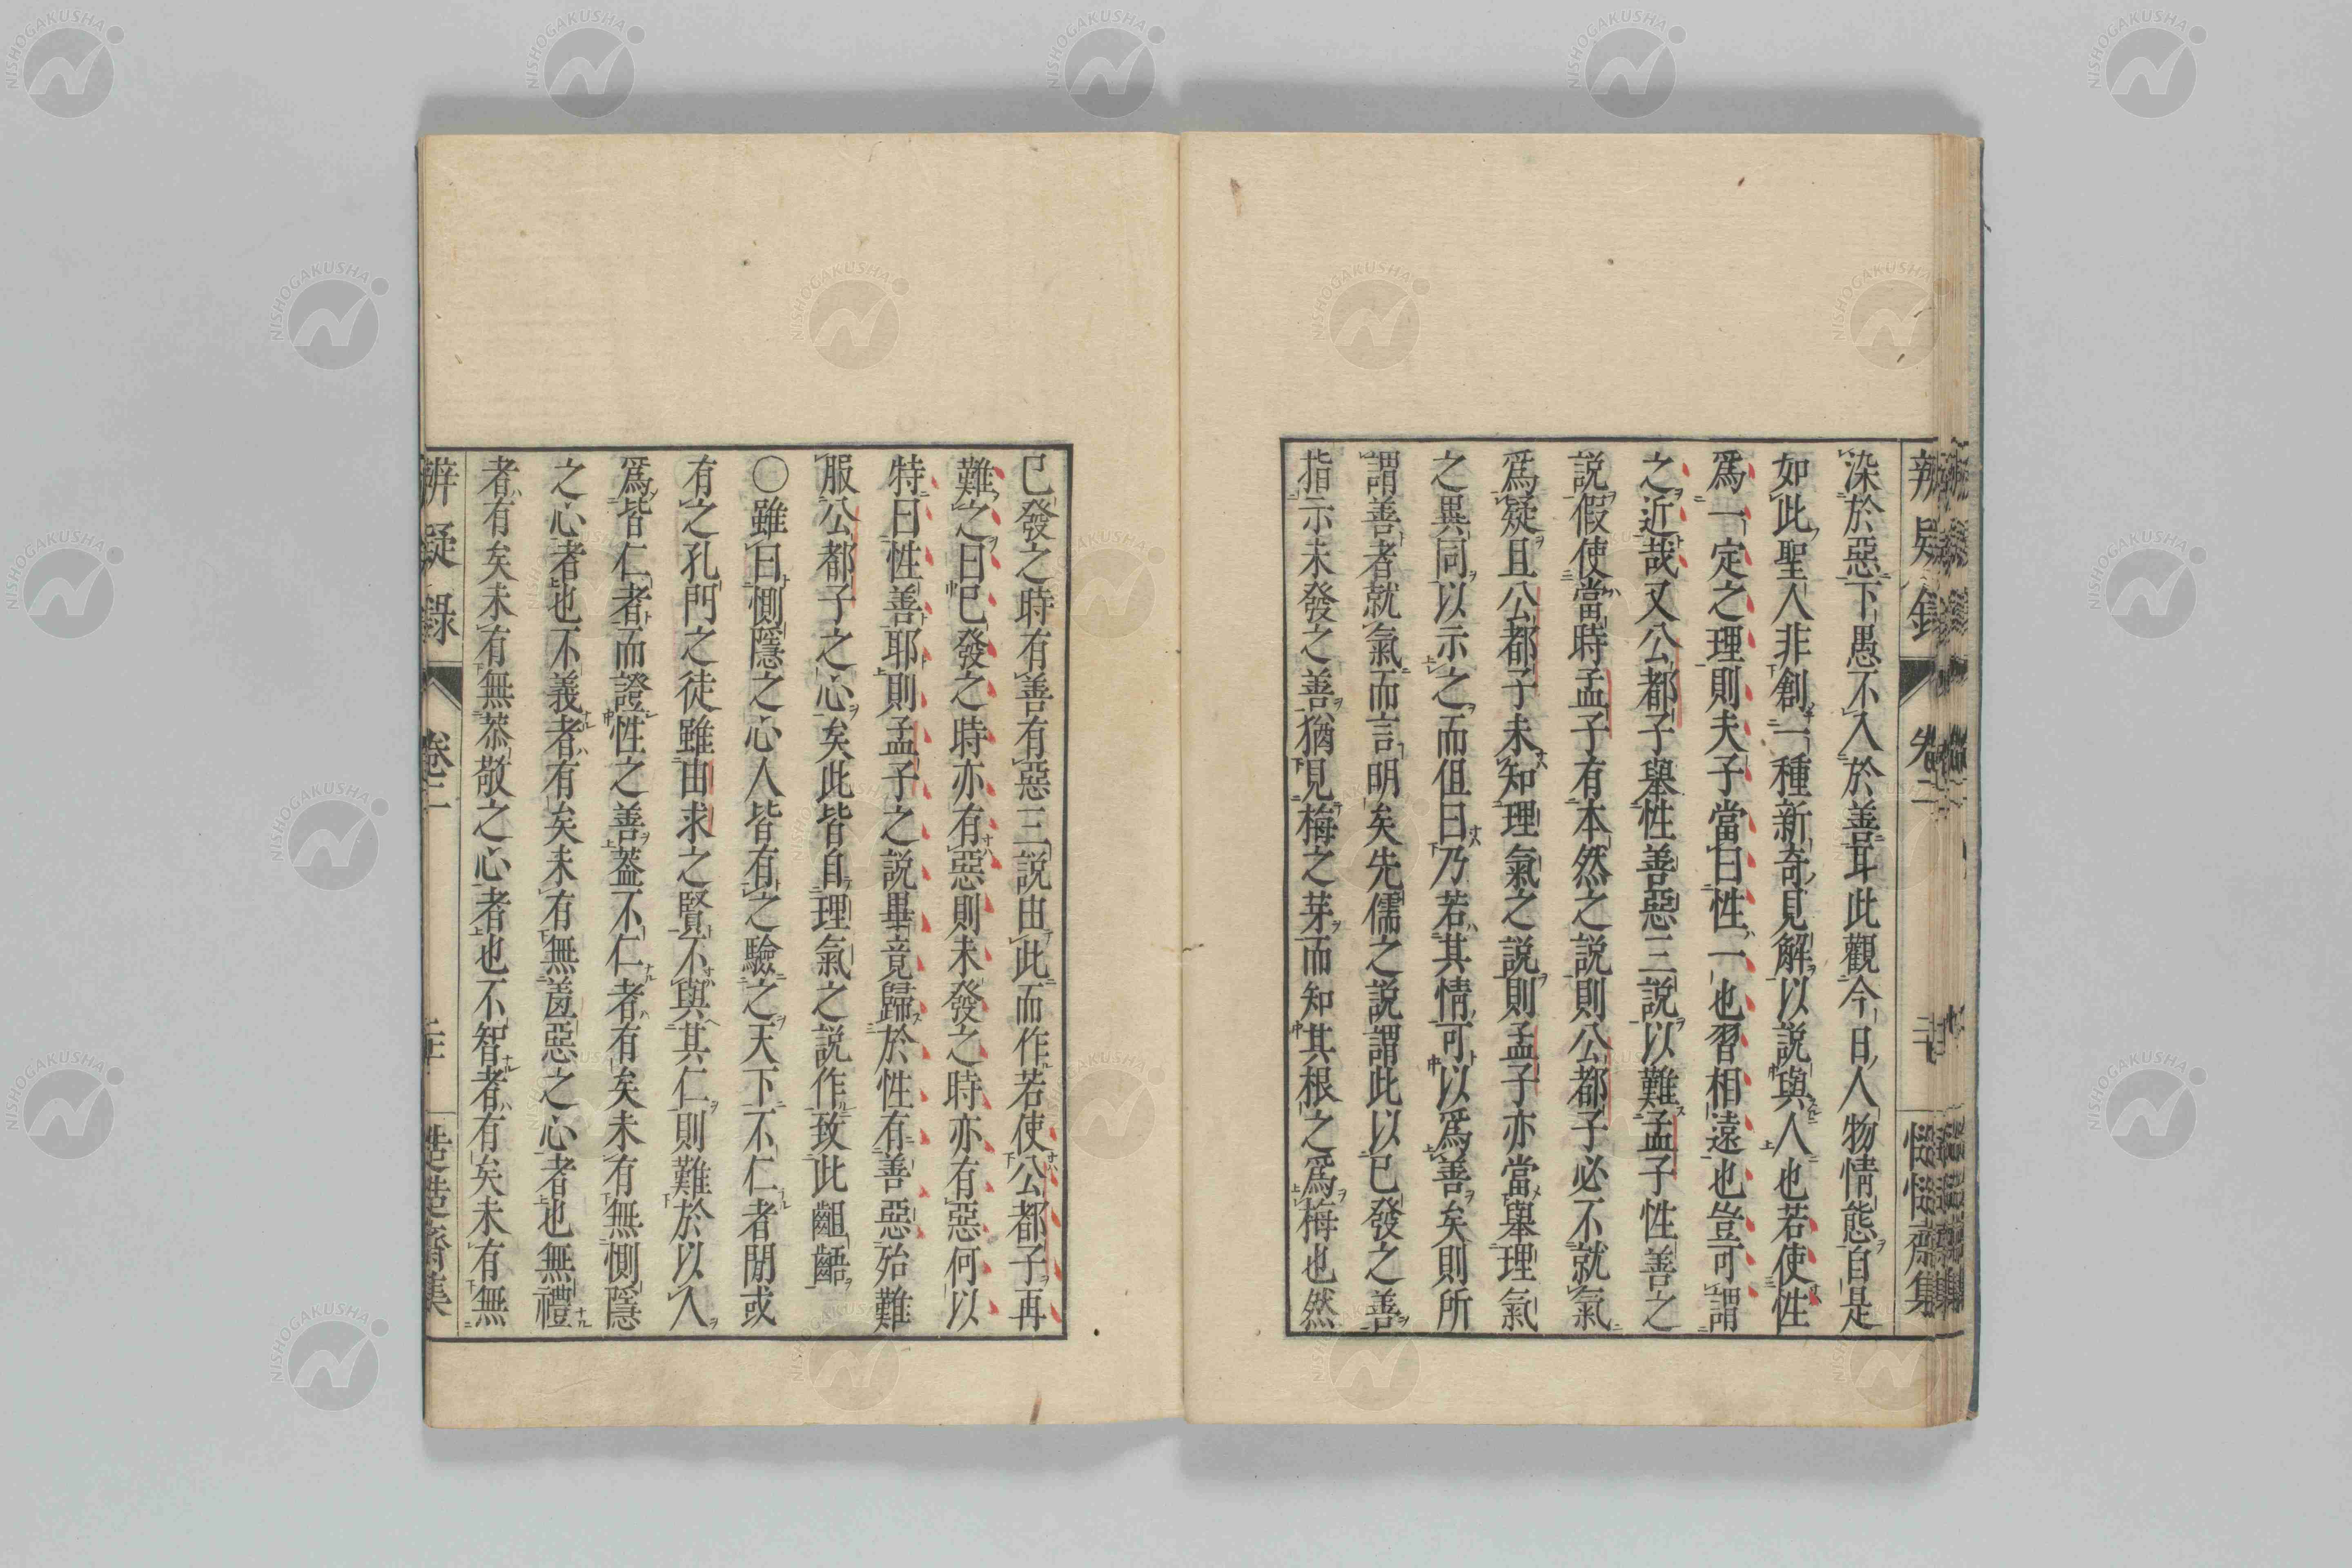 染於惡下愚不入於善耳此觀今日人物情態自是
如此聖人非創一種新奇見解以説與人也若使性
爲一定之理則夫子當曰性一也習相遠也豈可謂
之近哉又公都子舉性善惡三説以難孟子性善之
説假使當時孟子有本然之説則公都子必不就氣
爲疑且公都子未知理氣之説則孟子亦當舉理氣
之異同以示之而但曰乃若其情可以爲善矣則所
謂善者就氣而言明矣先儒之説謂此以已發之善
指示未發之善猶見梅之芽而知其根之爲梅也然
已發之時有善有惡三説由此而作若使公都子再
難之曰已發之時亦有惡則未發之時亦有惡何以
特曰性善耶則孟子之説畢竟歸於性有善惡殆難
服公都子之心矣此皆自理氣之説作致此齟齬
〇雖曰惻隱之心人皆有之驗之天下不仁者閒或
有之孔門之徒雖由求之賢不與其仁則難於以人
爲皆仁者而證性之善蓋不仁者有矣未有無惻隱
之心者也不義者有矣未有無羞惡之心者也無禮
者有矣未有無恭敬之心者也不智者有矣未有無
辨疑録
卷二
NISHOGAKUSHA